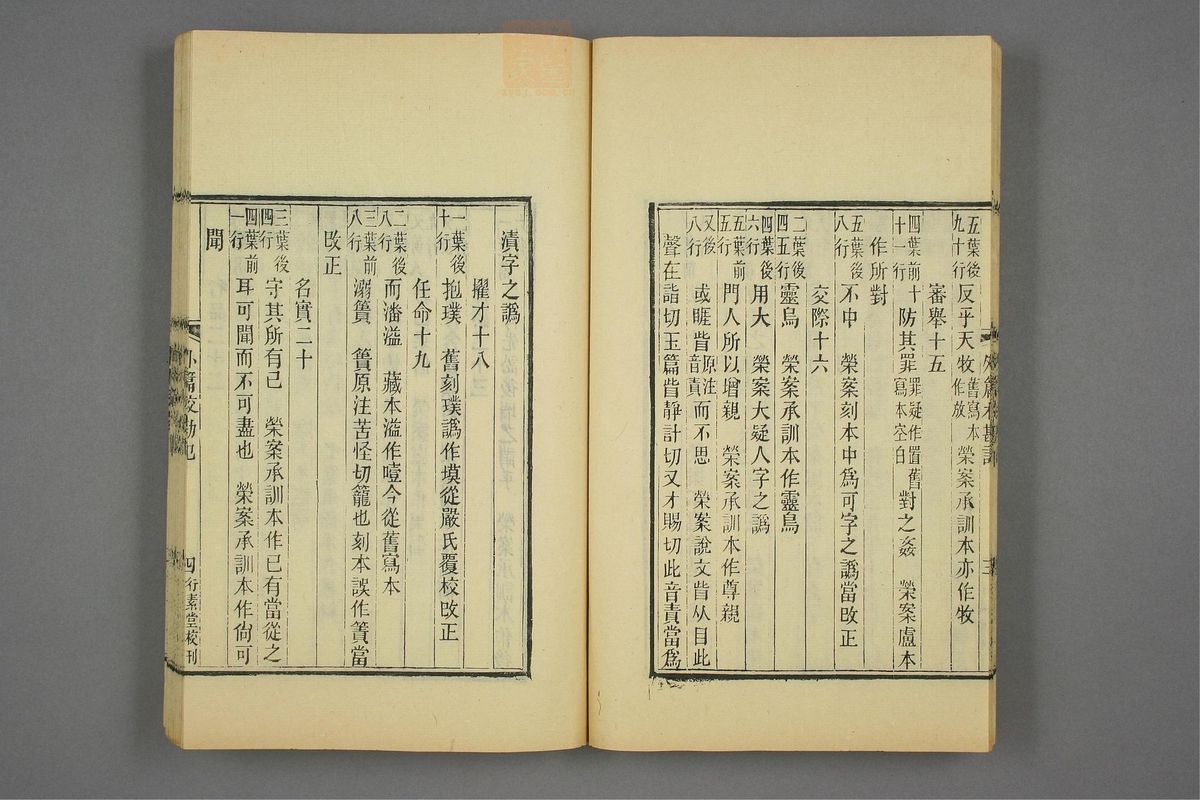 五葉後九十行 反乎天牧舊寫本作放 榮案承訓本亦作牧
審舉十五
四葉前十一行 十防其罪罪疑作置舊寫本空白對之姦 榮案盧本
作所對
五葉後八行 不中 榮案刻本中爲可字之譌當改正
交際十六
二葉後四五行 靈烏 榮案承訓本作靈鳥
四葉後六行 用大 榮案大疑人字之譌
五葉前五行 門人所以增親 榮案承訓本作尊親
又後八行 或睚眥原注音責而不思 榮案說文眥从目此
聲在詣切玉篇眥靜計切又才賜切此音責當爲
漬字之譌
擢才十八
一葉後十行 抱璞 舊刻璞譌作墣從嚴氏覆校改正
任命十九
二葉後八行 而潘溢 藏本溢作噎今從舊寫本
三葉前八行 溺簣 簣原注苦怪切籠也刻本誤作簀當
改正
名實二十
三葉後四行 守其所有已 榮案承訓本作已有當從之
四葉前一行 耳可聞而不可盡也 榮案承訓本作尙可
聞
外篇校勘記
四
行素堂校刊